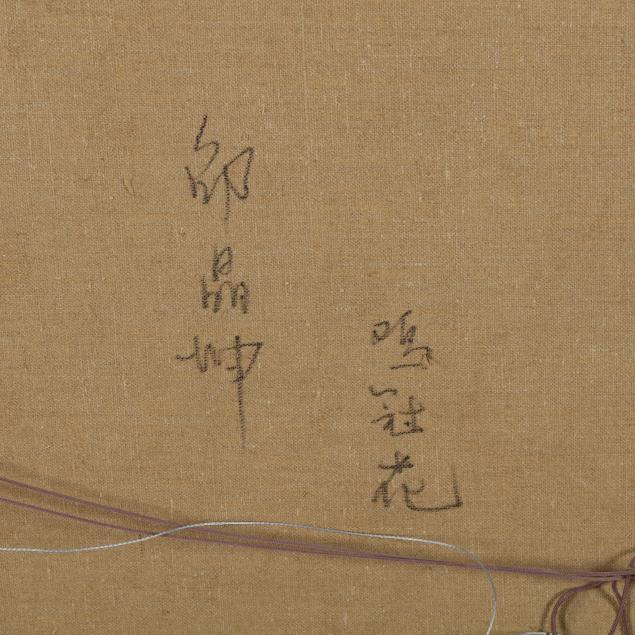 鸡冠花
邵晶坤